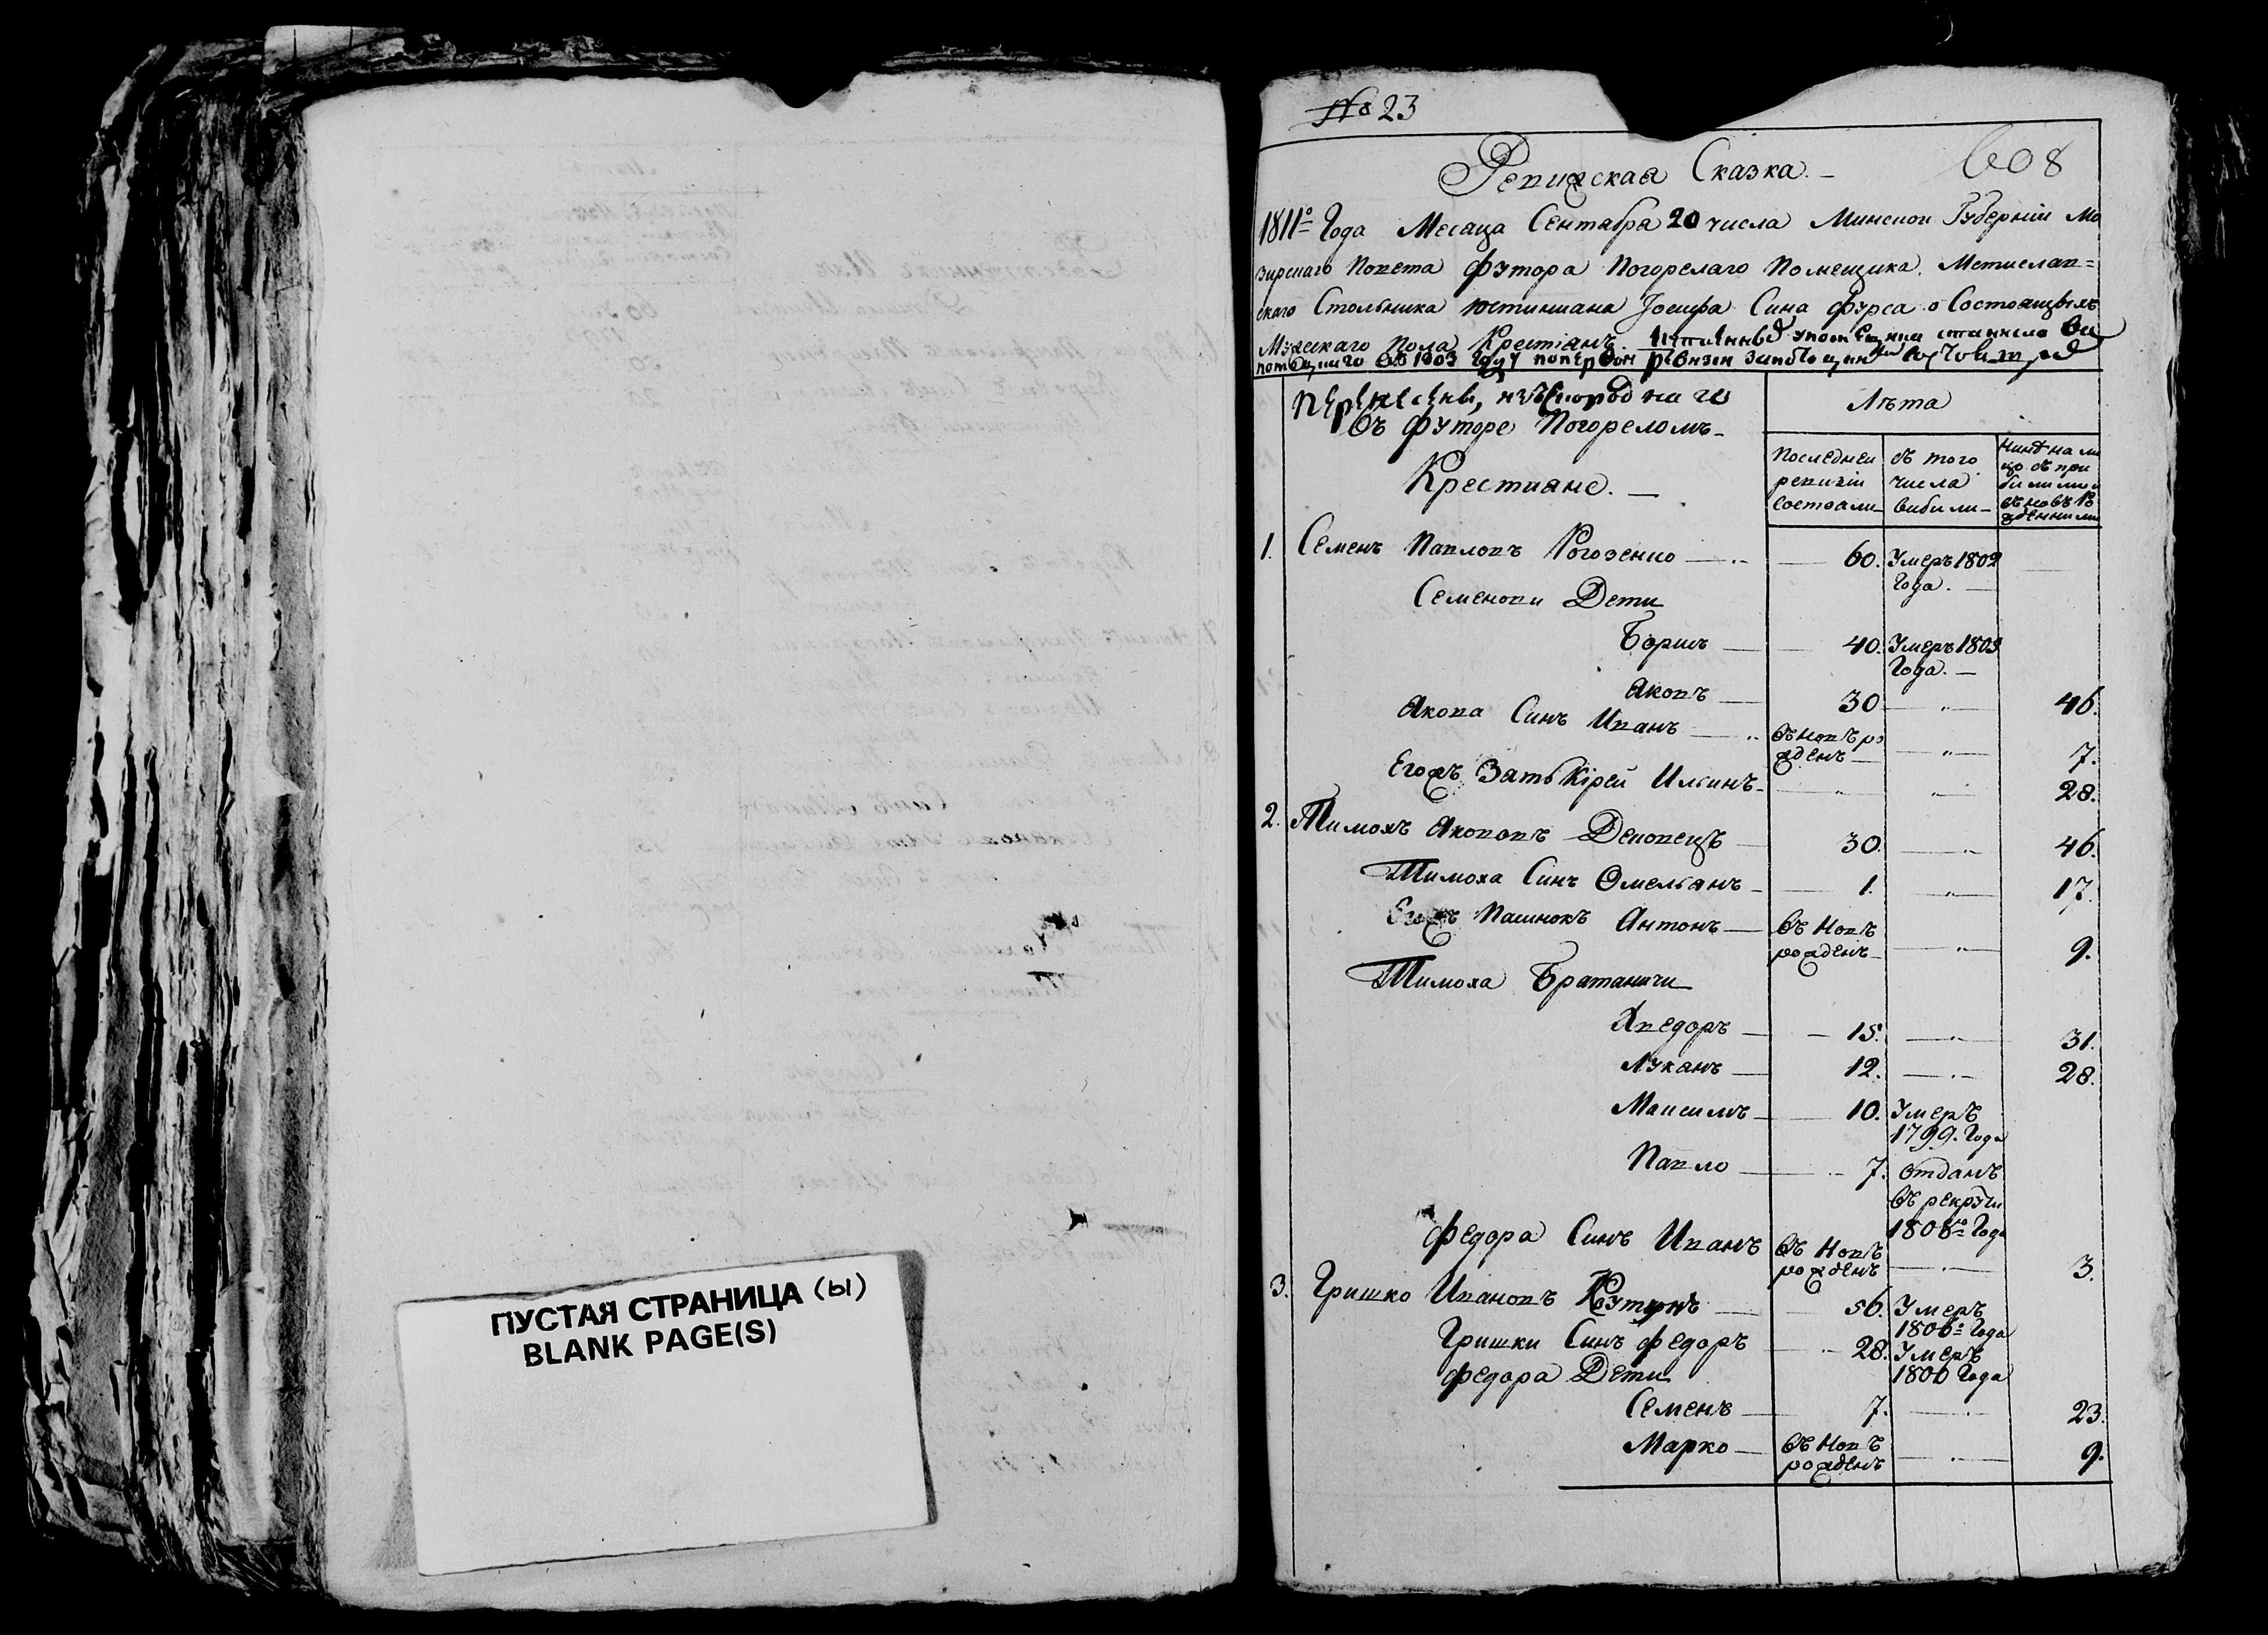 № 23
608
Ревижская Сказка. —
1811º Года Месаца Сентабра 20 числа Минскои Губернiи Мо
зирскаго Повета Футора Погорелаго Помещика, Метиславь=
скаго Столника Юстиниана Iосифа Сина Фурса о Состоащихъ
Мужескаго Пола Крестiанъ.
1803 году ревизiи
въ Футоре Погореломъ
Крестиане. —
Лѣта
Последнеи ревизiи состоали
съ того числа вибили
Нинѣ на ли
цо съ при
1. Семенъ Павловъ Рогозенко — 60. Умеръ 1802 Года. —
Семенови Дети
Борисъ — 40. Умеръ 1809 Года. —
Аковъ — 30 — " — 46.
Акова Синъ Иванъ — въ новѣ рожденъ — " — 7.
Егожъ Зать Кiрей Илинъ — " — " — 28.
2. Тимохъ Акововъ Деховецъ — 30. — " — 46.
Тимоха Синъ Омельанъ — 1. — " — 17.
Егожъ Пасинокъ Антонъ — въ новѣ рожденъ — " — 9.
Тимоха Братаничи
Хведоръ — 15. — " — 31.
Луканъ — 12. — " — 28.
Максимъ — 10. Умеръ 1799. Года
Павло — 7. отданъ въ рекрути 1808º Года
Федора Синъ Иванъ въ новѣ рожденъ — " — 3.
3. Гришко Ивановъ — 56. Умеръ 1806º Года
Гришки Синъ Федоръ — 28. Умеръ 1806 Года
Федора Дети
Семенъ — 7. — " — 23.
Марко — въ новѣ рожденъ — " — 9.
ПУСТАЯ СТРАНИЦА (Ы)
BLANK PAGE(S)